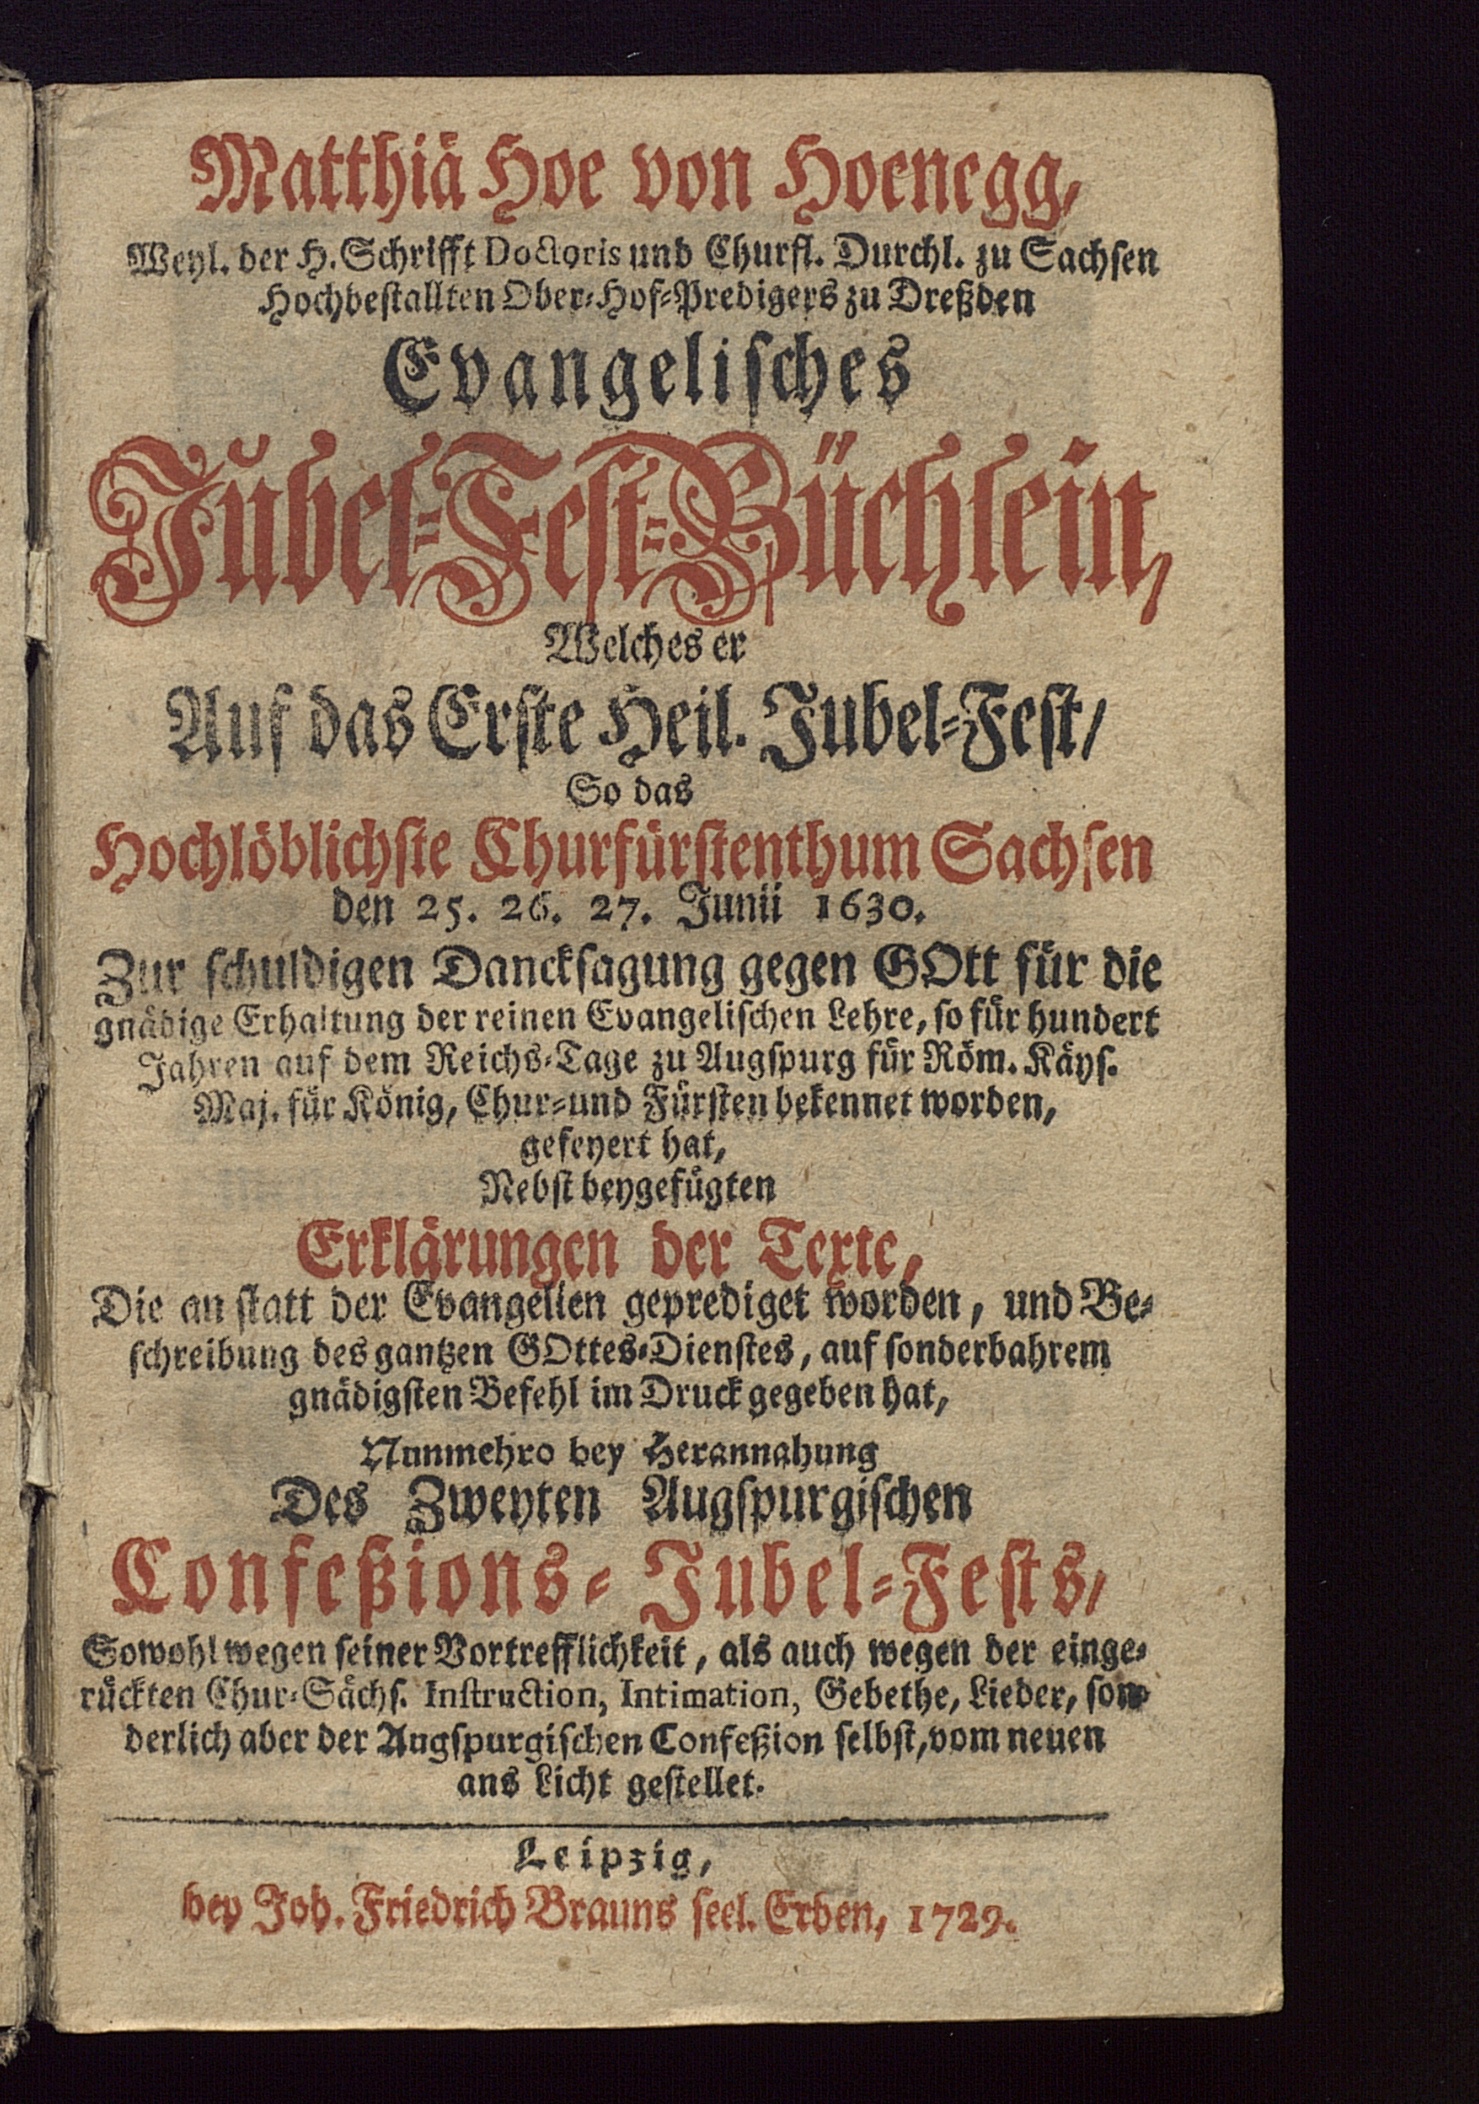 Matthiä Hoe von Hoenegg,
Weyl. der H. Schrifft Doctoris und Churfl. Durchl. zu Sachsen
Hochbestallten Ober-Hof-Predigers zu Dreßden
Evangelisches
Jubel-Fest-Büchlein,
Welches er
Auf das Erste Heil. Jubel-Fest/
So das
Hochlöblichste Churfürstenthum Sachsen
den 25. 26. 27. Junii 1630.
Zur schuldigen Dancksagung gegen GOtt für die
gnädige Erhaltung der reinen Evangelischen Lehre, so für hundert
Jahren auf dem Reichs-Tage zu Augspurg für Röm. Käys.
Maj. für König, Chur-und Fürsten bekennet worden,
gefeyert hat,
Nebst beygefügten
Erklärungen der Texte,
Die an statt der Evangelien geprediget worden, und Be-
schreibung des gantzen GOttes-Dienstes, auf sonderbahrem
gnädigsten Befehl im Druck gegeben hat,
Nunmehro bey Herannahung
Des Zweyten Augspurgischen
Confeßions- Jubel-Fests/
Sowohl wegen seiner Vortrefflichkeit, als auch wegen der einge-
rückten Chur-Sächs. Instruction, Intimation, Gebethe, Lieder, son-
derlich aber der Augspurgischen Confeßion selbst, vom neuen
ans Licht gestellet.
Leipzig,
bey Joh. Friedrich Brauns seel. Erben, 1729.